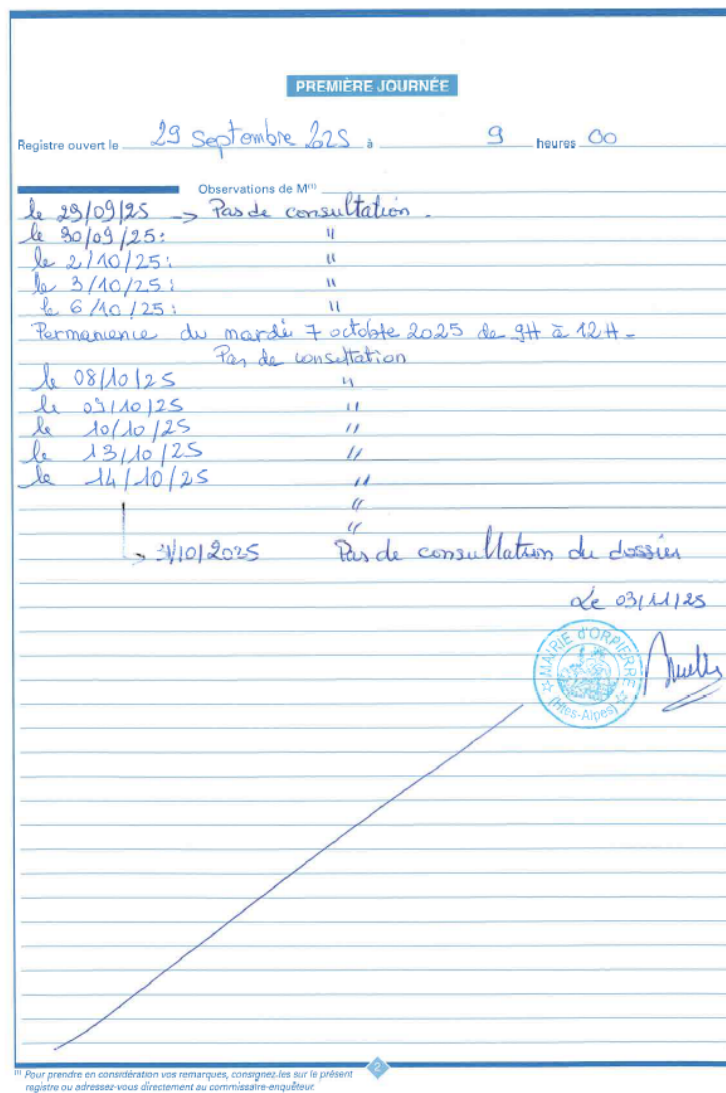 PREMIÈRE JOURNÉE
Registre ouvert le 29 Septembre 2025 à 9 heures 00
Observations de M⁽¹⁾
le 29/09/25 → Pas de consultation.
le 30/09/25: "
le 2/10/25: "
le 3/10/25: "
le 6/10/25: "
Permanence du mardi 7 octobre 2025 de 9H à 12H-
Pas de consultation
le 08/10/25 "
le 09/10/25 "
le 10/10/25 "
le 13/10/25 "
le 14/10/25 "
"
"
→ 31/10/2025 Pas de consultation du dossier
Le 03/11/25
MAIRIE d'ORPIERRE
(Htes-Alpes)
2
(1) Pour prendre en considération vos remarques, consignez-les sur le présent
registre ou adressez-vous directement au commissaire-enquêteur.